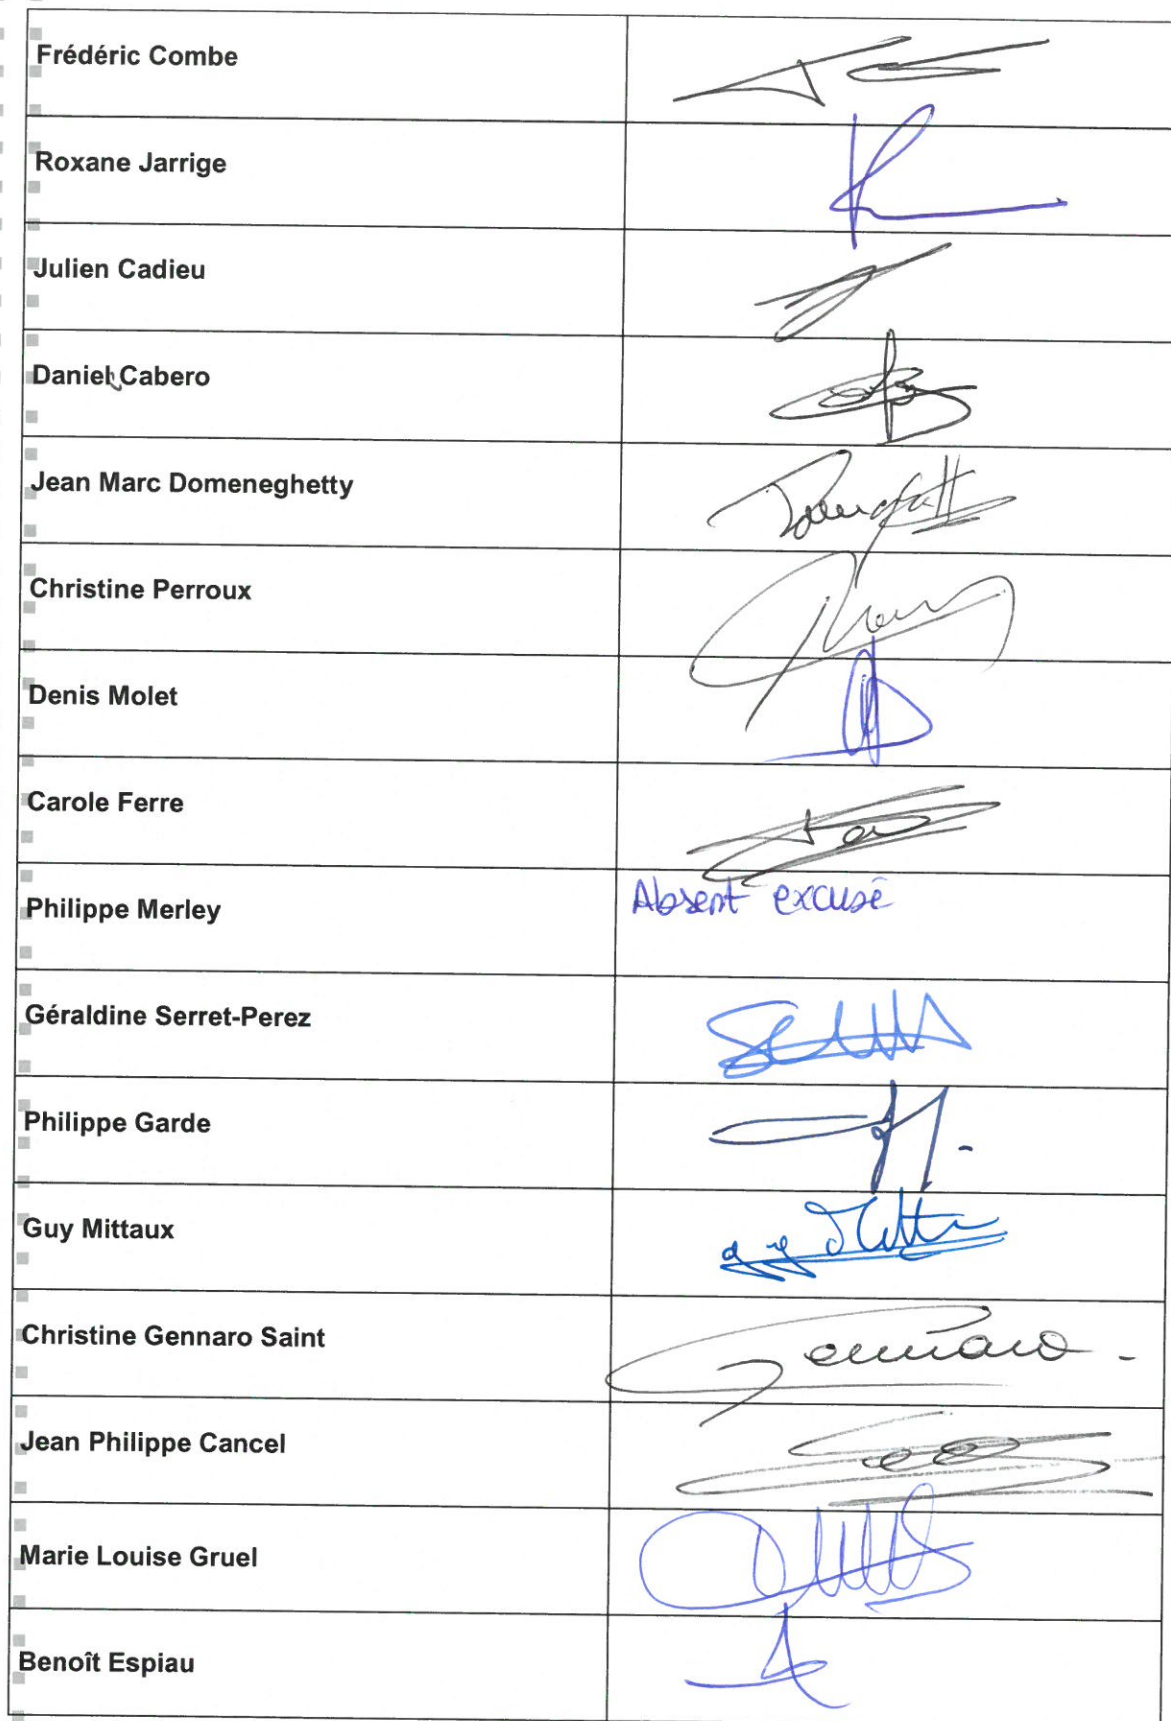 Frédéric Combe
Roxane Jarrige
Julien Cadieu
Daniel Cabero
Jean Marc Domeneghetty
Christine Perroux
Denis Molet
Carole Ferre
Philippe Merley
Absent excusé
Géraldine Serret-Perez
Philippe Garde
Guy Mittaux
Christine Gennaro Saint
Gennaro
Jean Philippe Cancel
Marie Louise Gruel
Benoît Espiau